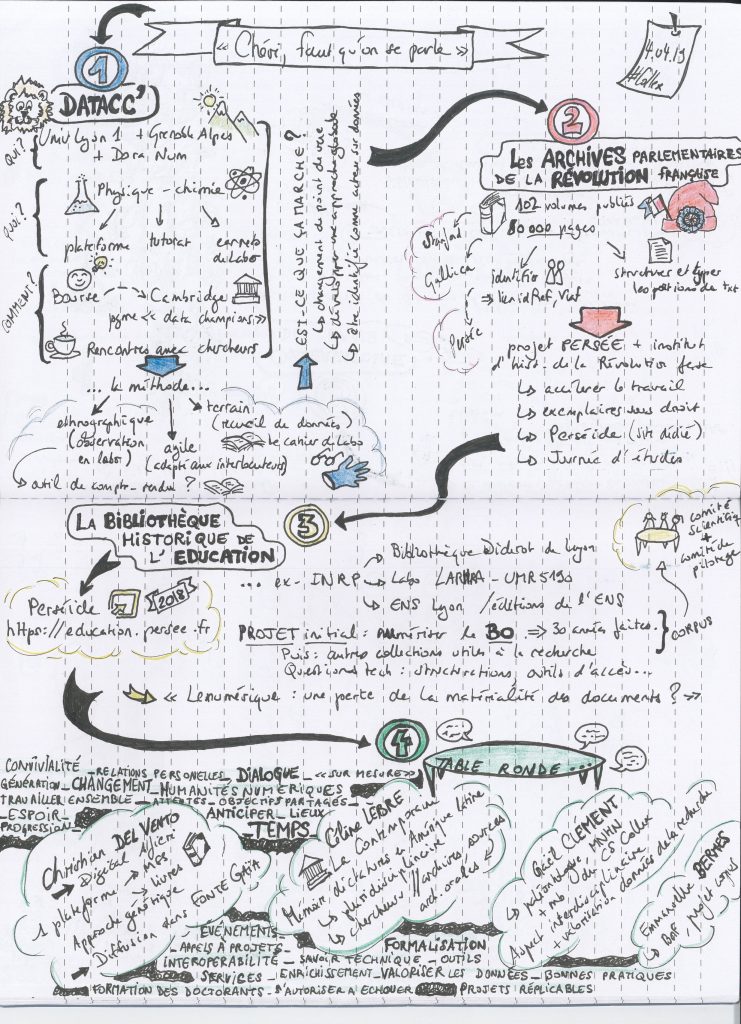 « Chéri, faut qu'on se parle »
4.04.19
#Collex
1
DATACC'
QUI?
Univ Lyon 1 + Grenoble Alpes
+ Dora Num
QUOI?
Physique - chimie
plateforme
tutorat
carnets
de Labo
COMMENT?
Bourse
Cambridge
pgme « data champions »
Rencontres avec chercheurs
... la méthode...
ethnographique
(observation
en labo)
agile
(adapté aux interlocuteurs)
terrain
(recueil de données)
le cahier de Labo
outil de compte-rendu ?
EST-CE QUE ÇA MARCHE ?
changement de point de vue
dévelop. par une approche globale
être identifié comme acteur sur données
2
Les ARCHIVES PARLEMENTAIRES
DE LA RÉVOLUTION FRANÇAISE
102 volumes publiés
80 000 pages
Stanford
Gallica
Persée
identifier
=> lien idRef, Viaf
structurer et typer
les portions de txt
projet PERSÉE + institut
d'hist. de la Révolution fcse
accélérer le travail
exemplaires sous droit
Perséide (site dédié)
Journée d'études
3
LA BIBLIOTHÈQUE
HISTORIQUE DE
L'EDUCATION
Perséide
2018
https://education.persee.fr
... ex-INRP
Bibliothèque Diderot de Lyon
Labo LARHRA - UMR 5190
ENS Lyon / éditions de l'ENS
comité
scientifique
+
comité de
pilotage
PROJET initial : numériser le BO => 30 années faites.
Puis : autres collections utiles à la recherche
Questions tech : structurations, outils d'accès...
CORPUS
« Le numérique : une perte de la matérialité des documents ? »
4
TABLE RONDE...
CONVIVIALITÉ _ RELATIONS PERSONELLES _ DIALOGUE _ « SUR MESURE »
GÉNÉRATION _ CHANGEMENT _ HUMANITÉS NUMÉRIQUES
TRAVAILLER ENSEMBLE _ ATTENTES _ OBJECTIFS PARTAGÉS
_ ESPOIR _ ANTICIPER _ LIEUX
PROGRESSION _ TEMPS
Christian DEL VENTO
Digital
1 plateforme → mss
→ livres
Approche génétique
Diffusion dans FONTE GAIA
Céline LÈBRE
La Contemporaine
Mémoire dictatures en Amérique Latine
pluridisciplinaire
chercheurs // archives, sources
arch. orales
Gaël CLEMENT
paléontologue MNHN
+ mb du CS Collex
Aspect interdisciplinaire
+ valorisation données de la recherche
Emmanuelle BERMES
BnF projet corpus
EVÉNEMENTS
_ APPELS À PROJETS _ FORMALISATION
INTEROPÉRABILITÉ _ SAVOIR TECHNIQUE _ OUTILS
SERVICES _ ENRICHISSEMENT _ VALORISER LES DONNÉES _ BONNES PRATIQUES
FORMATION DES DOCTORANTS _ S'AUTORISER A ECHOUER _ PROJETS RÉPLICABLES